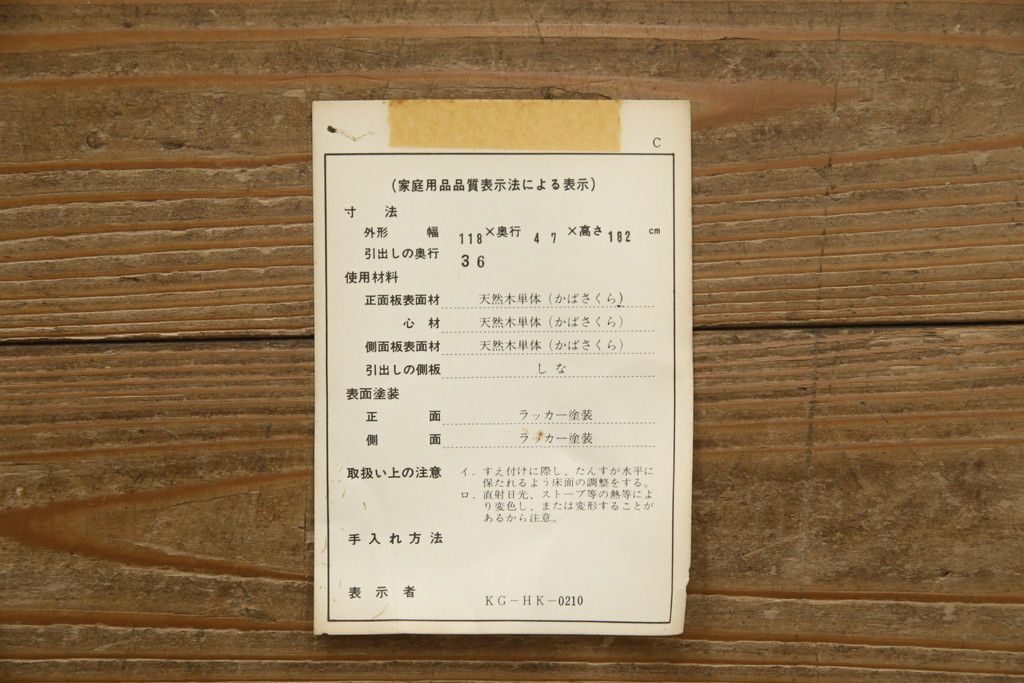 C
(家庭用品品質表示法による表示)
寸法
外形 幅 118×奥行 47×高さ182 cm
引出しの奥行 36
使用材料
正面板表面材 天然木単体(かばさくら)
心材 天然木単体(かばさくら)
側面板表面材 天然木単体(かばさくら)
引出しの側板 しな
表面塗装
正面 ラッカー塗装
側面 ラッカー塗装
取扱い上の注意 イ.すえ付けに際し、たんすが水平に
保たれるよう床面の調整をする。
ロ.直射日光、ストーブ等の熱等によ
り変色し、または変形することが
あるから注意。
手入れ方法
表示者 KG-HK-0210